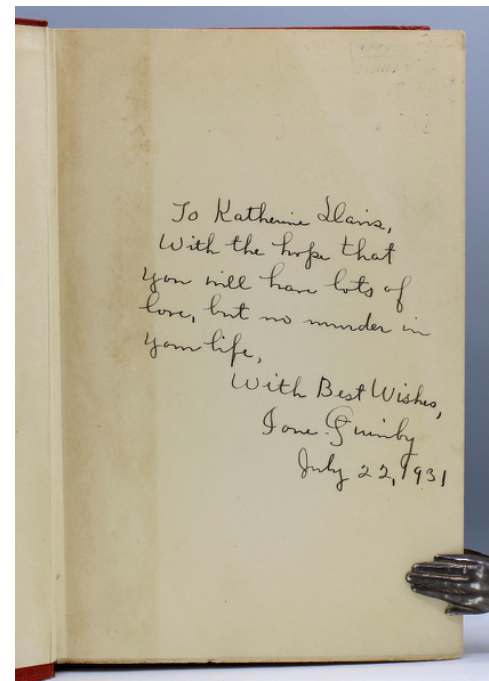 To Katherine Davis,
With the hope that
you will have lots of
love, but no murder in
your life,
With Best Wishes,
Ione Quinby
July 22, 1931